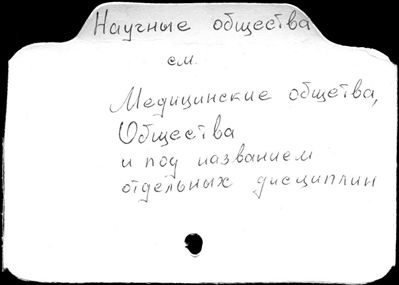 Научные общества
см.
Медицинские общетва,
Общества
и под названием
отдельных дисциплин